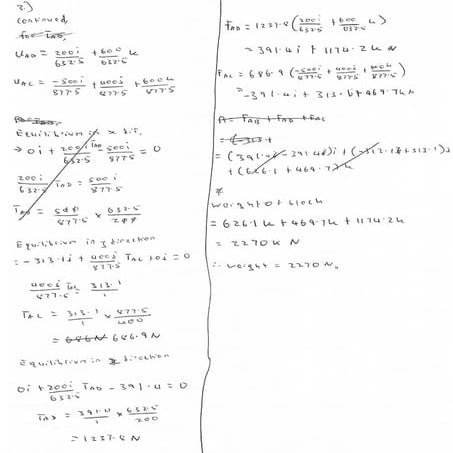 2.)
continued,
for TAD,
uAD = 200i/632.5 + 600/632.5 k
uAC = -500i/877.5 + 400j/877.5 + 600k/877.5
Equilibrium in x dir.
→ 0i + 200i/632.5 TAD - 500i/877.5 = 0
200i/632.5 TAD = 500i/877.5
TAD = 500/877.5 x 632.5/200
Equilibrium in j direction
= -313.1j + 400j/877.5 TAC + 0i = 0
400j/877.5 TAC 313.1/1
TAC = 313.1/1 x 877.5/400
= 686N 686.9N
Equilibrium in x direction
0i + 200i/632.5 TAD - 391.4 = 0
TAD = 391.4/1 x 632.5/200
= 1237.8N
FAD = 1237.8 (200i/632.5 + 600/632.5 k)
= 391.4i + 1174.2k N
FAC = 686.9 (-500i/877.5 + 400j/877.5 + 600k/877.5)
= -391.4i + 313.1j + 469.7k N
FA = FAB + FAD + FAC
= (-313.1
= (391.4i - 391.4i) + (-313.1j + 313.1)j
+ (626.1 + 469.7)k
weight of block
= 626.1k + 469.7k + 1174.2k
= 2270k N
∴ weight = 2270N.